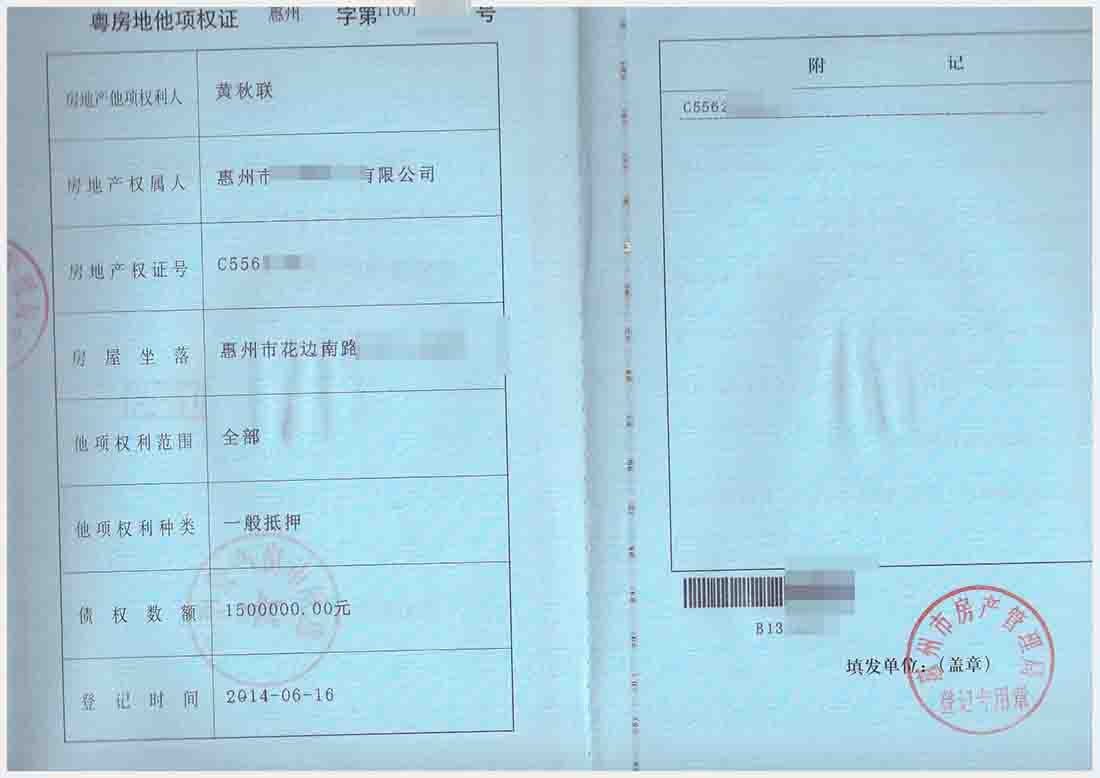 粤房地他项权证 惠州 字第11001 号
房地产他项权利人 黄秋联
房地产权属人 惠州市 有限公司
房地产权证号 C556
房屋坐落 惠州市花边南路
他项权利范围 全部
他项权利种类 一般抵押
债权数额 1500000.00元
登记时间 2014-06-16
附 记
C5562
B13
填发单位：（盖章）
惠州市房产管理局
登记专用章